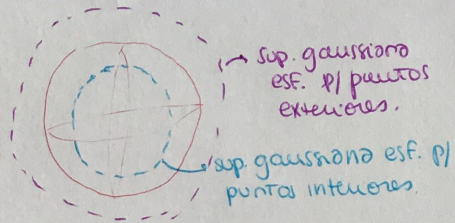 sup. gaussiana
esf. p/ puntos
exteriores.
sup. gaussiana esf. p/
puntos interiores.